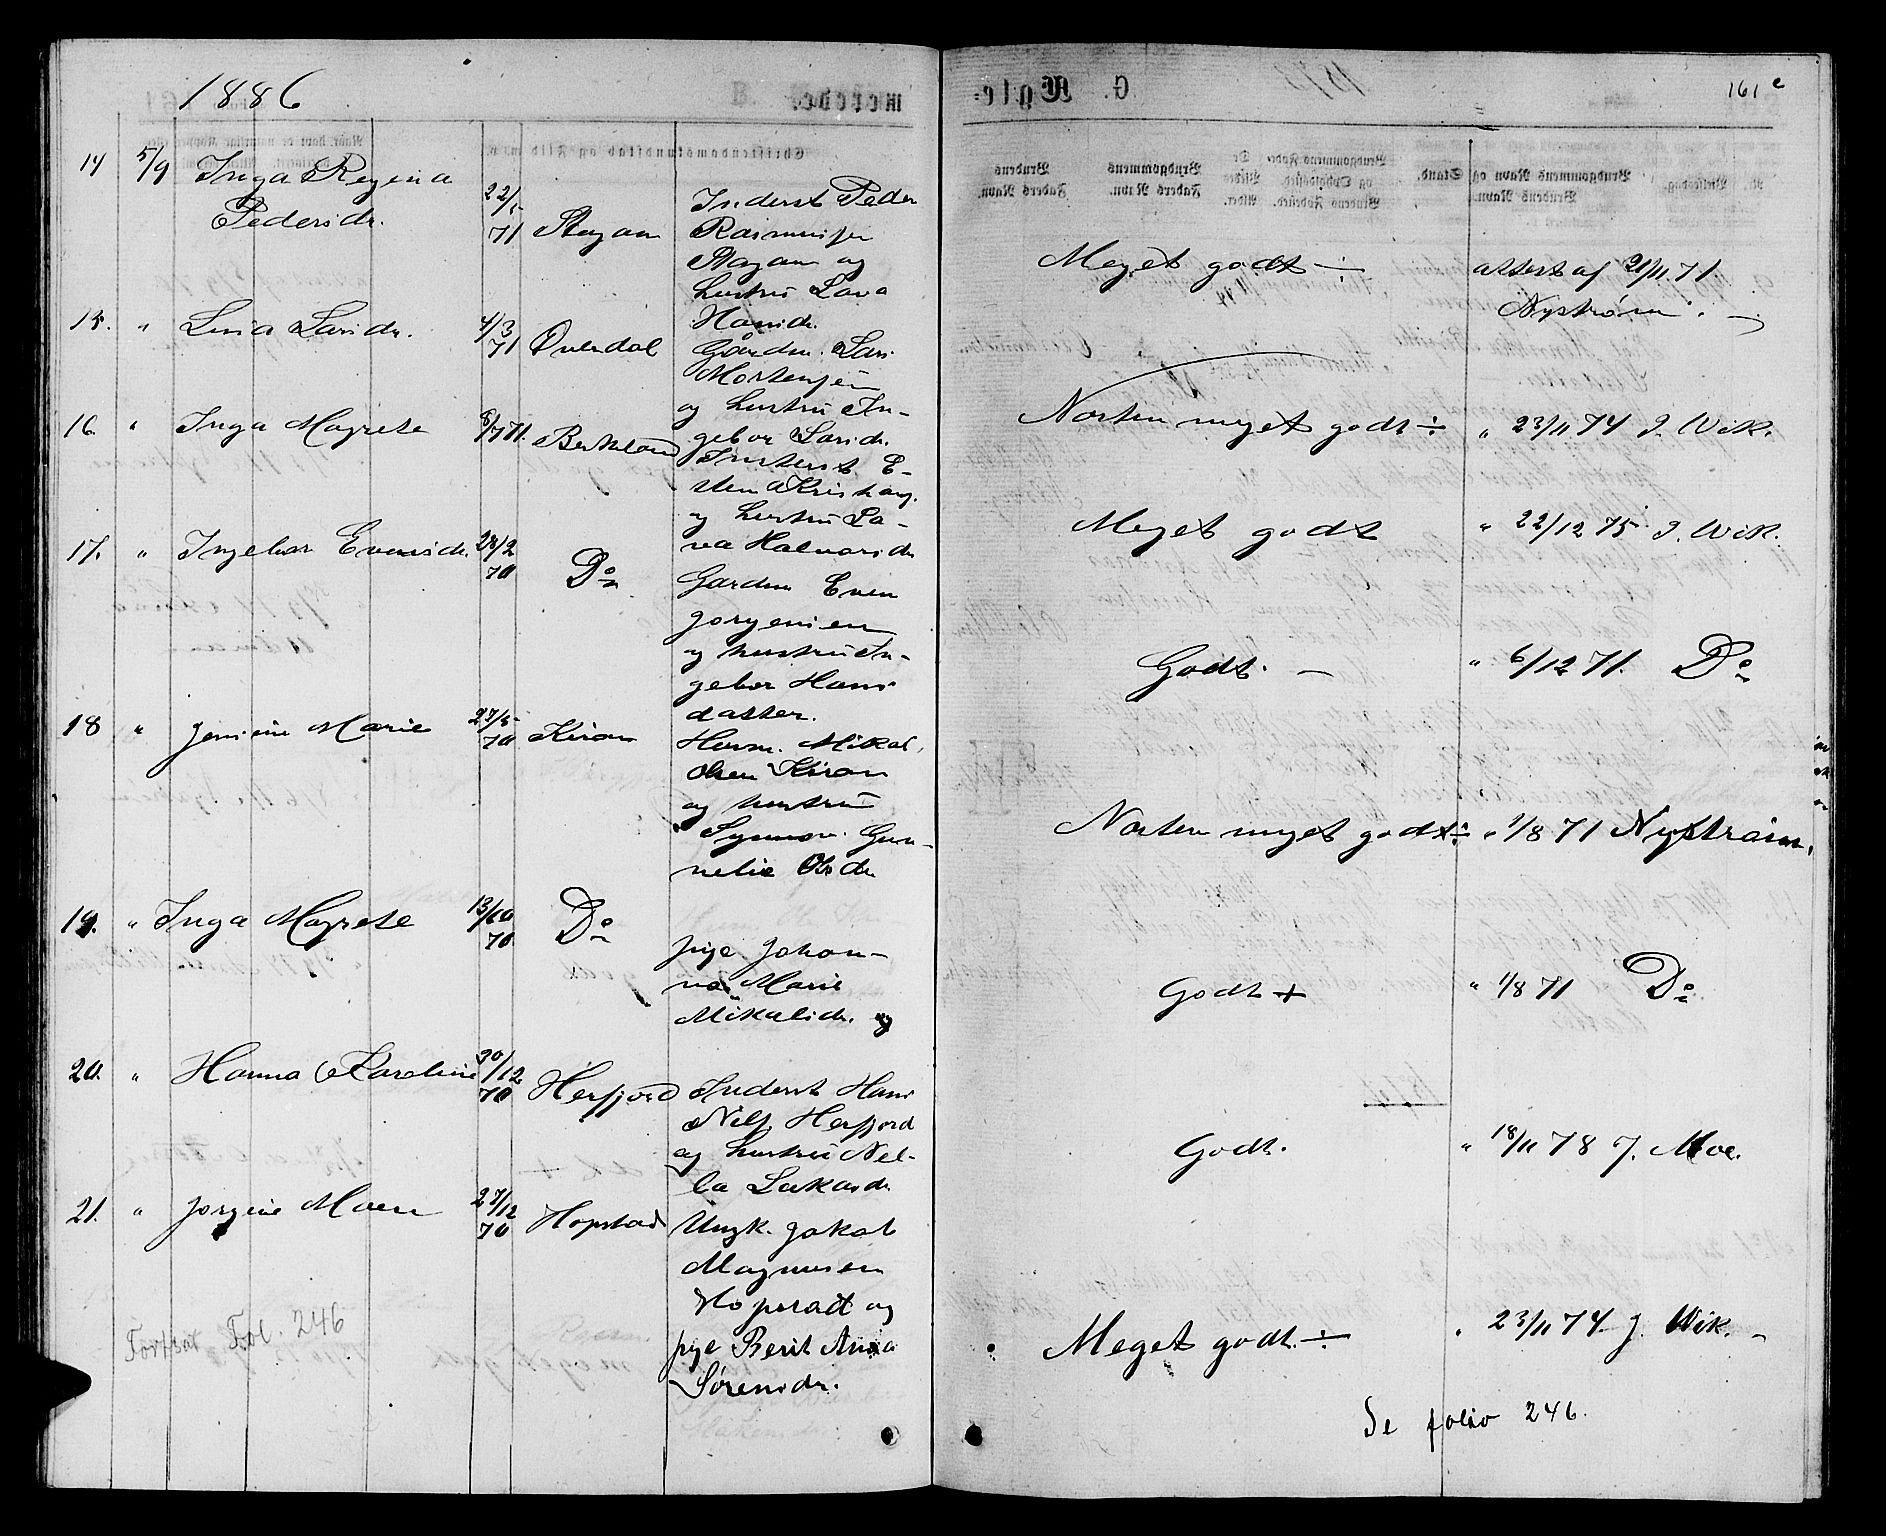 1886
161 c
14 5/9 Inga Regina
Pedersdr.
22/5
71
Stagan
Inderst Peder
Rasmussen
Stagan og
hustru Lava
Hansdr.
Meget godt ÷
attest af 21/11 71
Nystrøm.
15. " Lina Larsdr.
4/3
71
Øverdal
Gårdm. Lars
Mortensen
og hustru In-
gebor Larsdr.
Nesten meget godt ÷
" 23/11 74 J. Wik.
16. " Inga Magrete
8/7 71.
Berkeland
Inderst E-
sten
og hustru La-
va Halvorsdr
Meget godt
" 22/12 75 J. Wik.
17. " Ingebor Evensdr.
28/2
70
Do
Gardm Even
Jorgensen
og hustru In-
gebor Hans
datter.
Godt. -
" 6/12 71. Do
18 " Jensine Marie
27/5
70
Kiran
Husm. Mikal
Olsen Kiran
og hustru
Synnøv. Gun-
nelie Olsdr
Nesten meget godt ÷
" 1/8 71 Nystrøm.
19. " Inga Magrete
13/10
70
Do
pige Johan-
na Marie
Mikalsdr. og
Godt +
" 1/8 71 Do
20. " Hanna Karoline
30/12
70
Herfjord
Inderst Hans
Nils. Herfjord
og hustru Nel-
la Lukasdr.
Godt.
" 18/11 78 J. Moe.
21. " Jorgine Moen
27/12
70
Hopstad
Ungk. Jakob
Magnusen
Hopstad og
pige Berit Anna
Sørensdr.
Meget godt. ÷
" 23/11 74. J. Wik. -
Fortsat Fol. 246
Se folio 246.